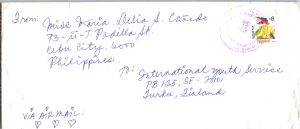 From: Miss Maria Delia S. Cañedo
73-U-T. Padilla St.
Cebu City, 6000
Philippines
To: International Youth Service
PB 125, SF-20101
Turku, Finland
VIA AIR MAIL